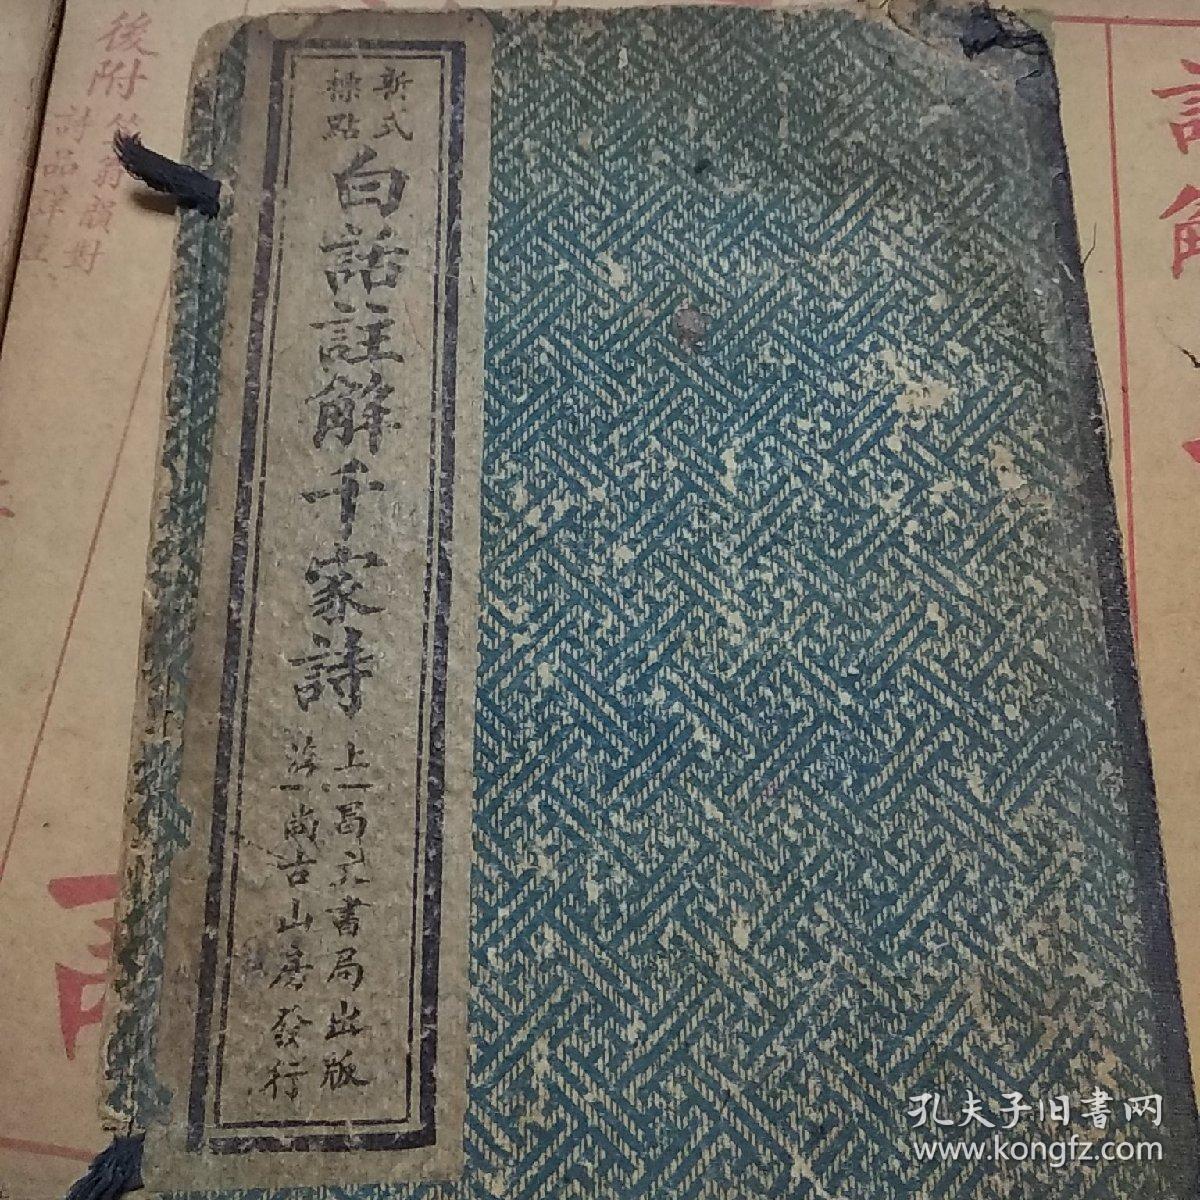 新式
標點
白話註解千家詩
上海昌文書局出版
尚古山房發行
後附
詩品詳註
孔夫子旧書网
www.kongfz.com